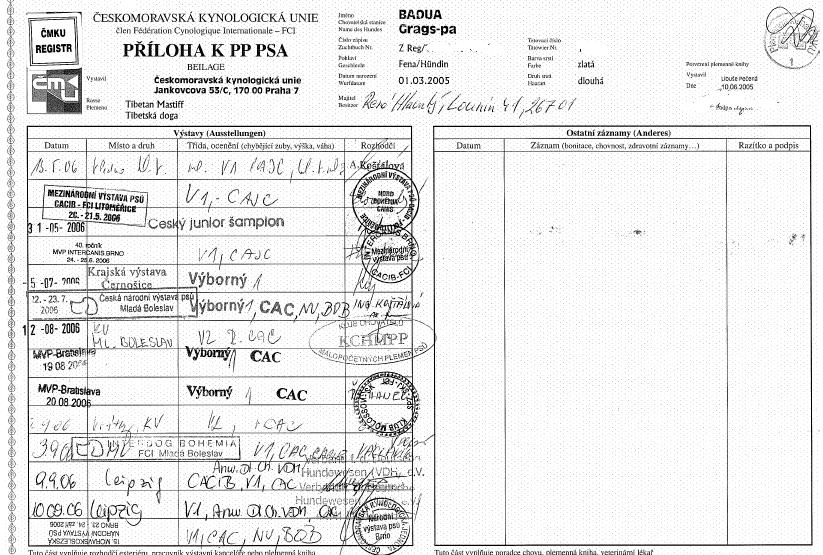 ČMKU
REGISTR
ČESKOMORAVSKÁ KYNOLOGICKÁ UNIE
člen Fédération Cynologique Internationale – FCI
PŘÍLOHA K PP PSA
BEILAGE
Vystavil
Českomoravská kynologická unie
Jankovcova 53/C, 170 00 Praha 7
Rasse
Plemeno
Tibetan Mastiff
Tibetská doga
Jméno
Chovatelská stanice
Name des Hundes
BADUA
Grags-pa
Číslo zápisu
Zuchtbuch Nr.
Z Reg/
Tetovací číslo
Tätowier Nr.
Pohlaví
Geschlecht
Fena/Hündin
Barva srsti
Farbe
zlatá
Datum narození
Wurfdatum
01.03.2005
Druh srsti
Haarart
dlouhá
Majitel
Besitzer
Potvrzení plemenné knihy
Vystavil
Libuše Pečená
Dne
10.06.2005
1
Výstavy (Ausstellungen)
Datum
Místo a druh
Třída, ocenění (chybějící zuby, výška, váha)
Rozhodčí
V1, CAJC
MEZINÁRODNÍ VÝSTAVA PSŮ
CACIB - FCI LITOMĚŘICE
20. - 21.5. 2006
V1, CAJC
31-05-2006
Český junior šampion
40. ročník
MVP INTERCANIS BRNO
24. - 25.6. 2006
V1, CAJC
INTERCANIS BRNO
Mezinárodní
výstava psů
CACIB-FCI
5-07-2006
Krajská výstava
Černošice
Výborný 1
22. - 23.7.
2006
Česká národní výstava psů
Mladá Boleslav
Výborný 1, CAC, NV, BOB
12-08-2006
KV
ML. BOLESLAV
V2 R. CAC
KLUB CHOVATELŮ
KCHMPP
MALOPOČETNÝCH PLEMEN PSŮ
MVP-Bratislava
19 08 2006
Výborný 1 CAC
MVP-Bratislava
20.08.2006
Výborný 1 CAC
KLUB MOLOSSOV
KV
3.9.06
INTERDOG BOHEMIA
FCI Mladá Boleslav
V1, CAC
9.9.06
Leipzig
Anw. Dt. Ch. VDH
CACIB, V1, CAC
Hundewesen (VDH) e.V.
10.09.06
Leipzig
V1, Anw. Dt. Ch. VDH, CAC
Hundewesen
15. MORAVSKOSLEZSKÁ
NÁRODNÍ VÝSTAVA PSŮ
BRNO 23. - 24. září 2006
V1, CAC, NV, BOB
Národní
výstava psů
Brno
Tuto část vyplňuje rozhodčí exteriéru, pracovník výstavní kanceláře nebo plemenná kniha
Ostatní záznamy (Anderes)
Datum
Záznam (bonitace, chovnost, zdravotní záznamy…)
Razítko a podpis
Tuto část vyplňuje poradce chovu, plemenná kniha, veterinární lékař